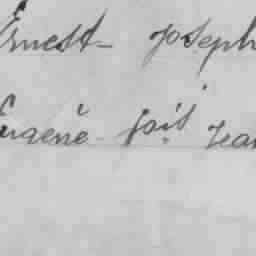 Ernest - Joseph
Eugène - fait Jean